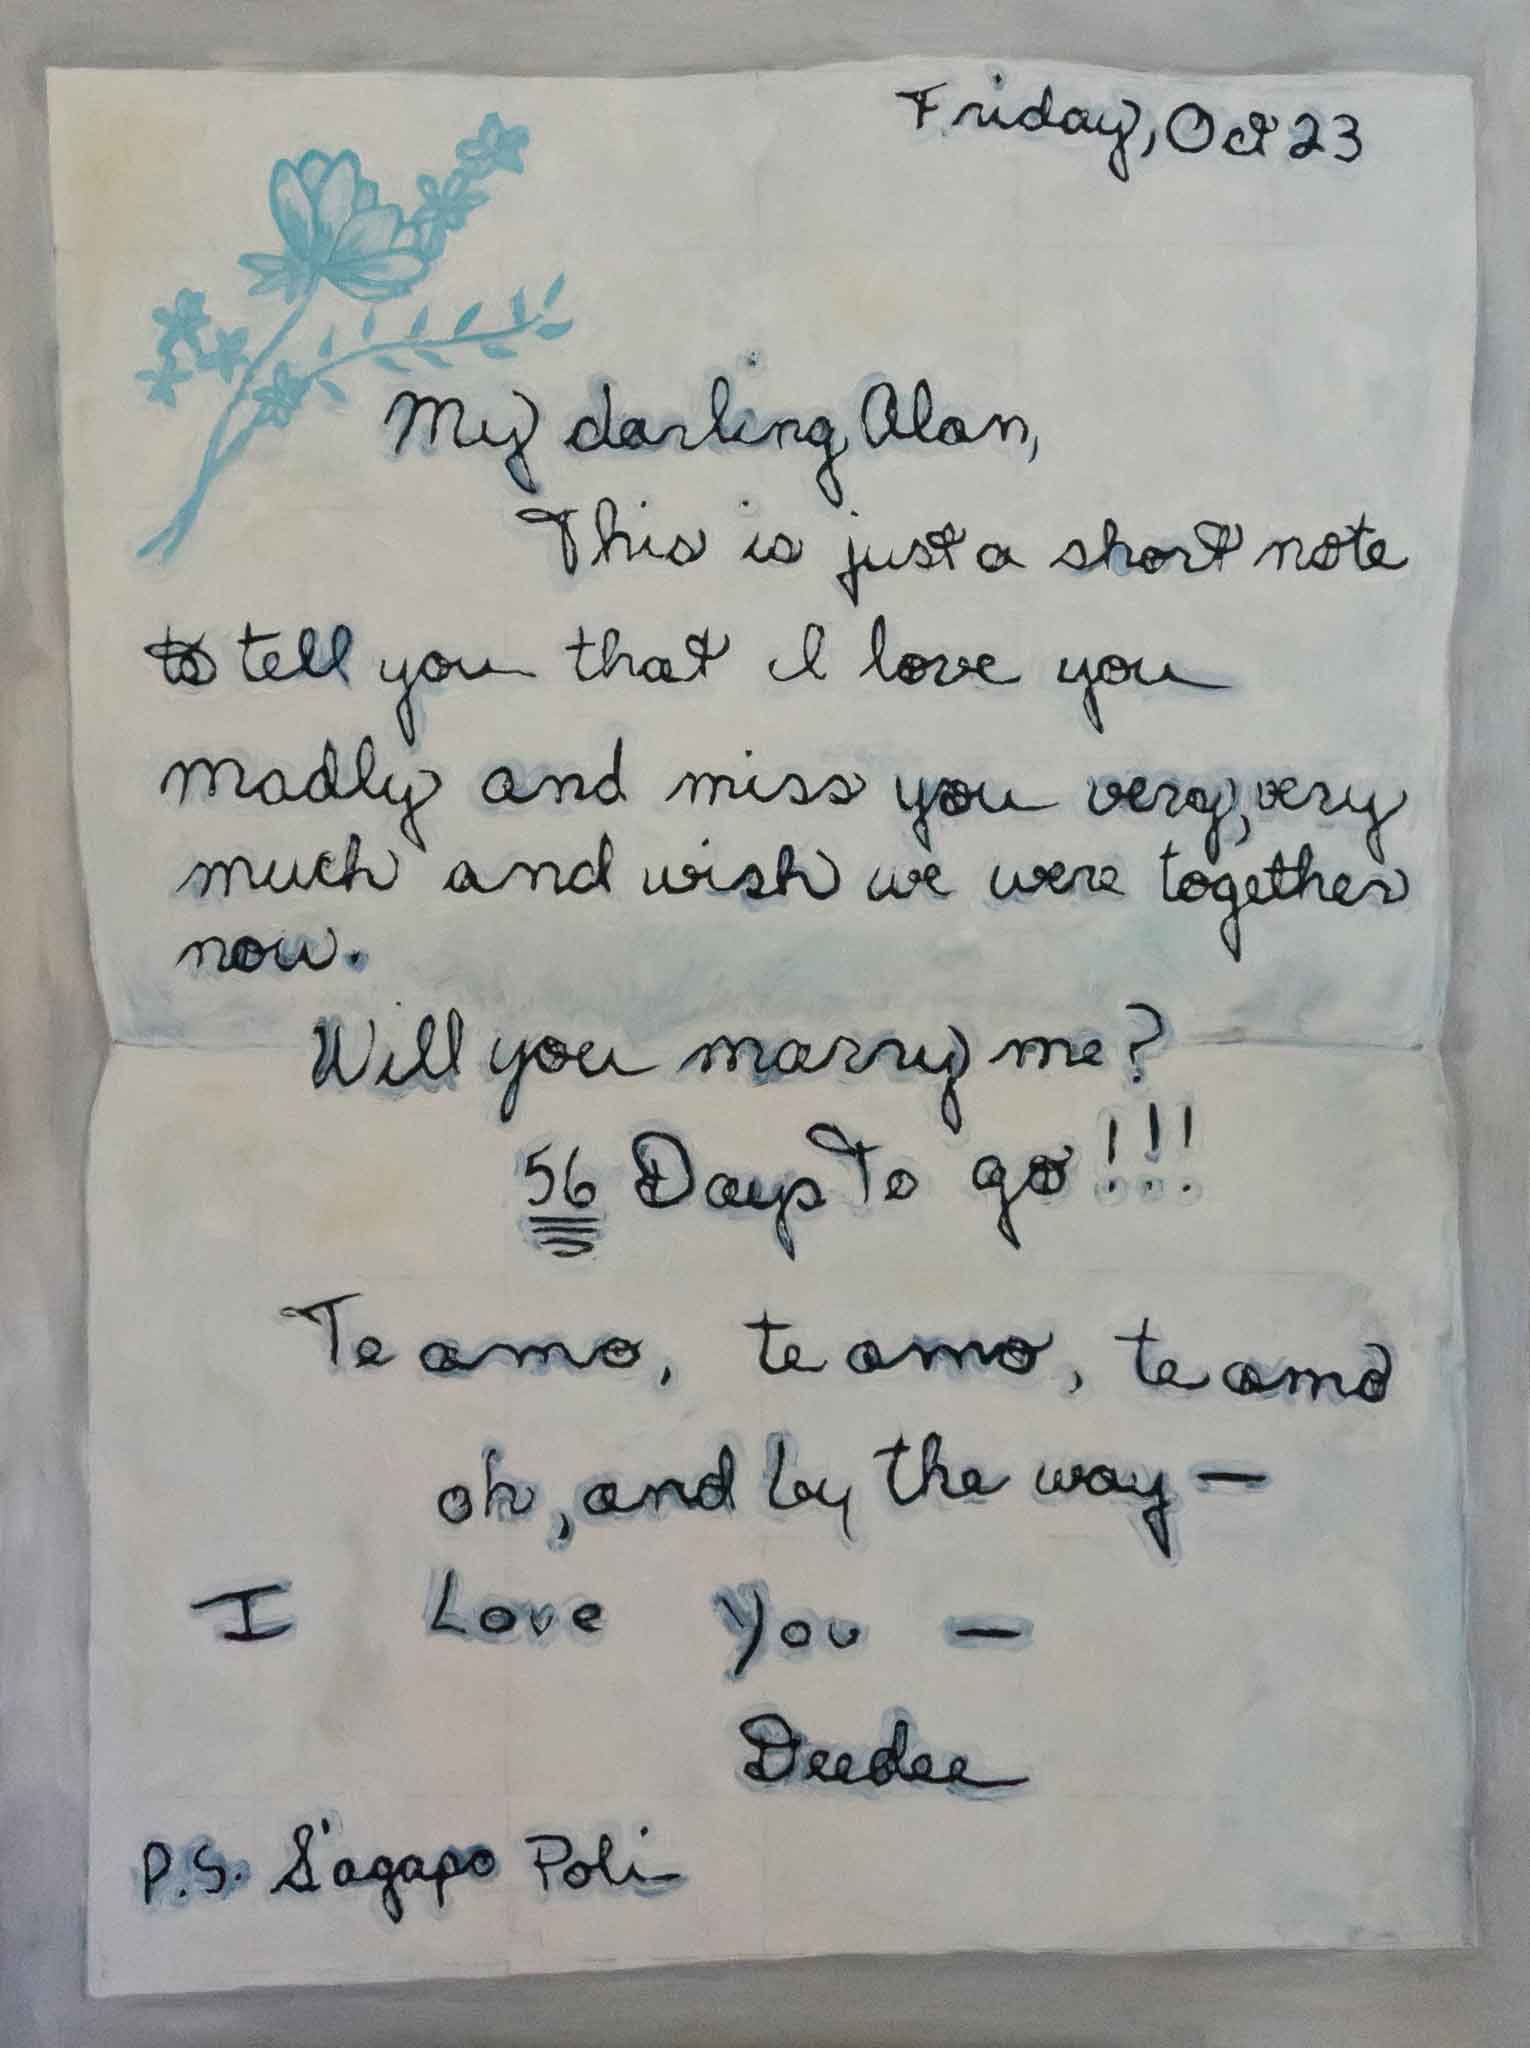 Friday, Oct 23
My darling Alan,
This is just a short note
to tell you that I love you
madly and miss you very, very
much and wish we were together
now.
Will you marry me?
56 Days To go!!!
Te amo, te amo, te amo
oh, and by the way —
I Love You —
Deedee
P.S. S'agapo Poli